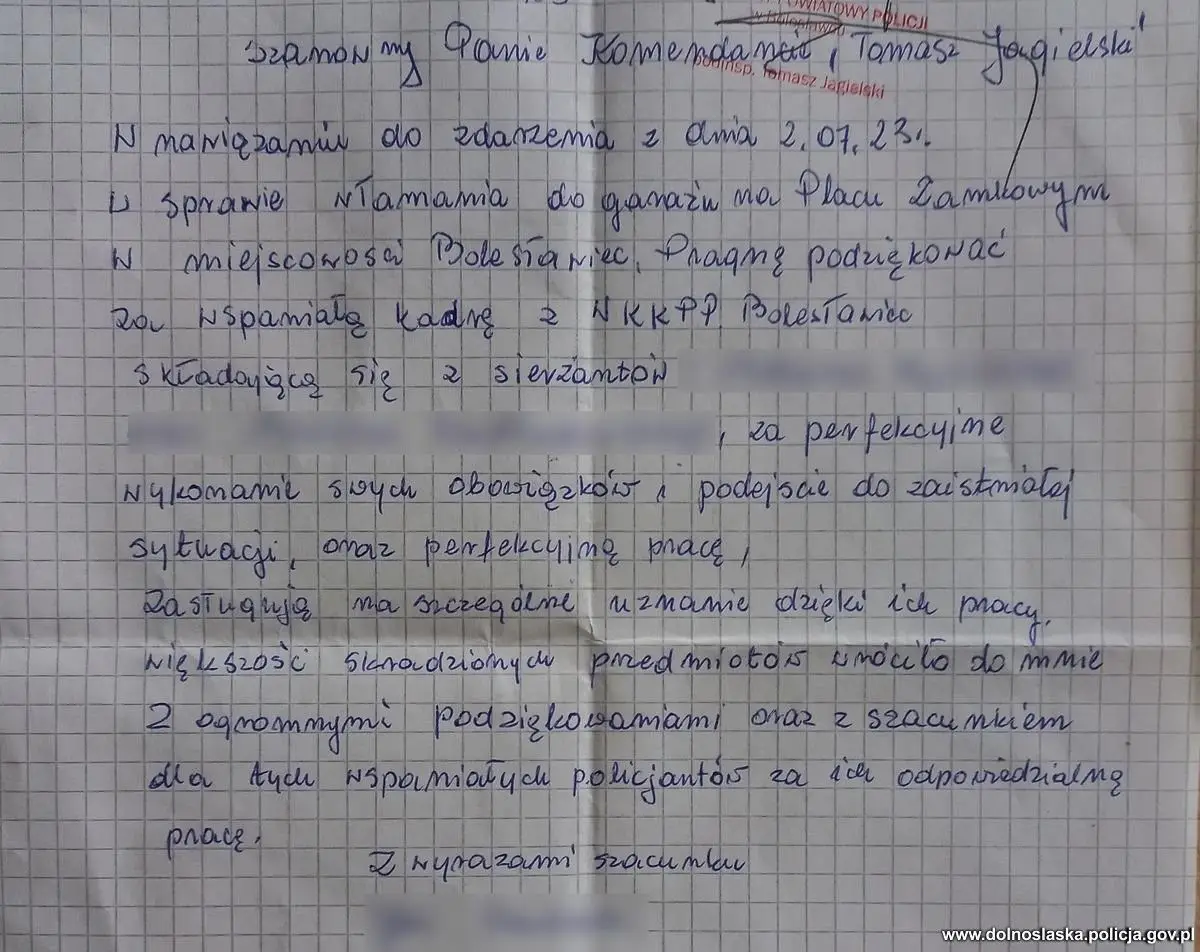 POWIATOWY POLICJI
w Bolesławcu
Szanowny Panie Komendancie, Tomasz Jagielski
podinsp. Tomasz Jagielski
W nawiązaniu do zdarzenia z dnia 2.07.23r.
W sprawie włamania do garażu na Placu Zamkowym
w miejscowości Bolesławiec. Pragnę podziękować
za wspaniałą kadrę z WKKPP Bolesławiec
składającą się z sierżantów
, za perfekcyjne
wykonanie swych obowiązków i podejście do zaistniałej
sytuacji, oraz perfekcyjną pracę,
Zasługują na szczególne uznanie dzięki ich pracy.
większość skradzionych przedmiotów wróciło do mnie
Z ogromnymi podziękowaniami oraz z szacunkiem
dla tych wspaniałych policjantów za ich odpowiedzialną
pracę.
Z wyrazami szacunku
www.dolnoslaska.policja.gov.pl